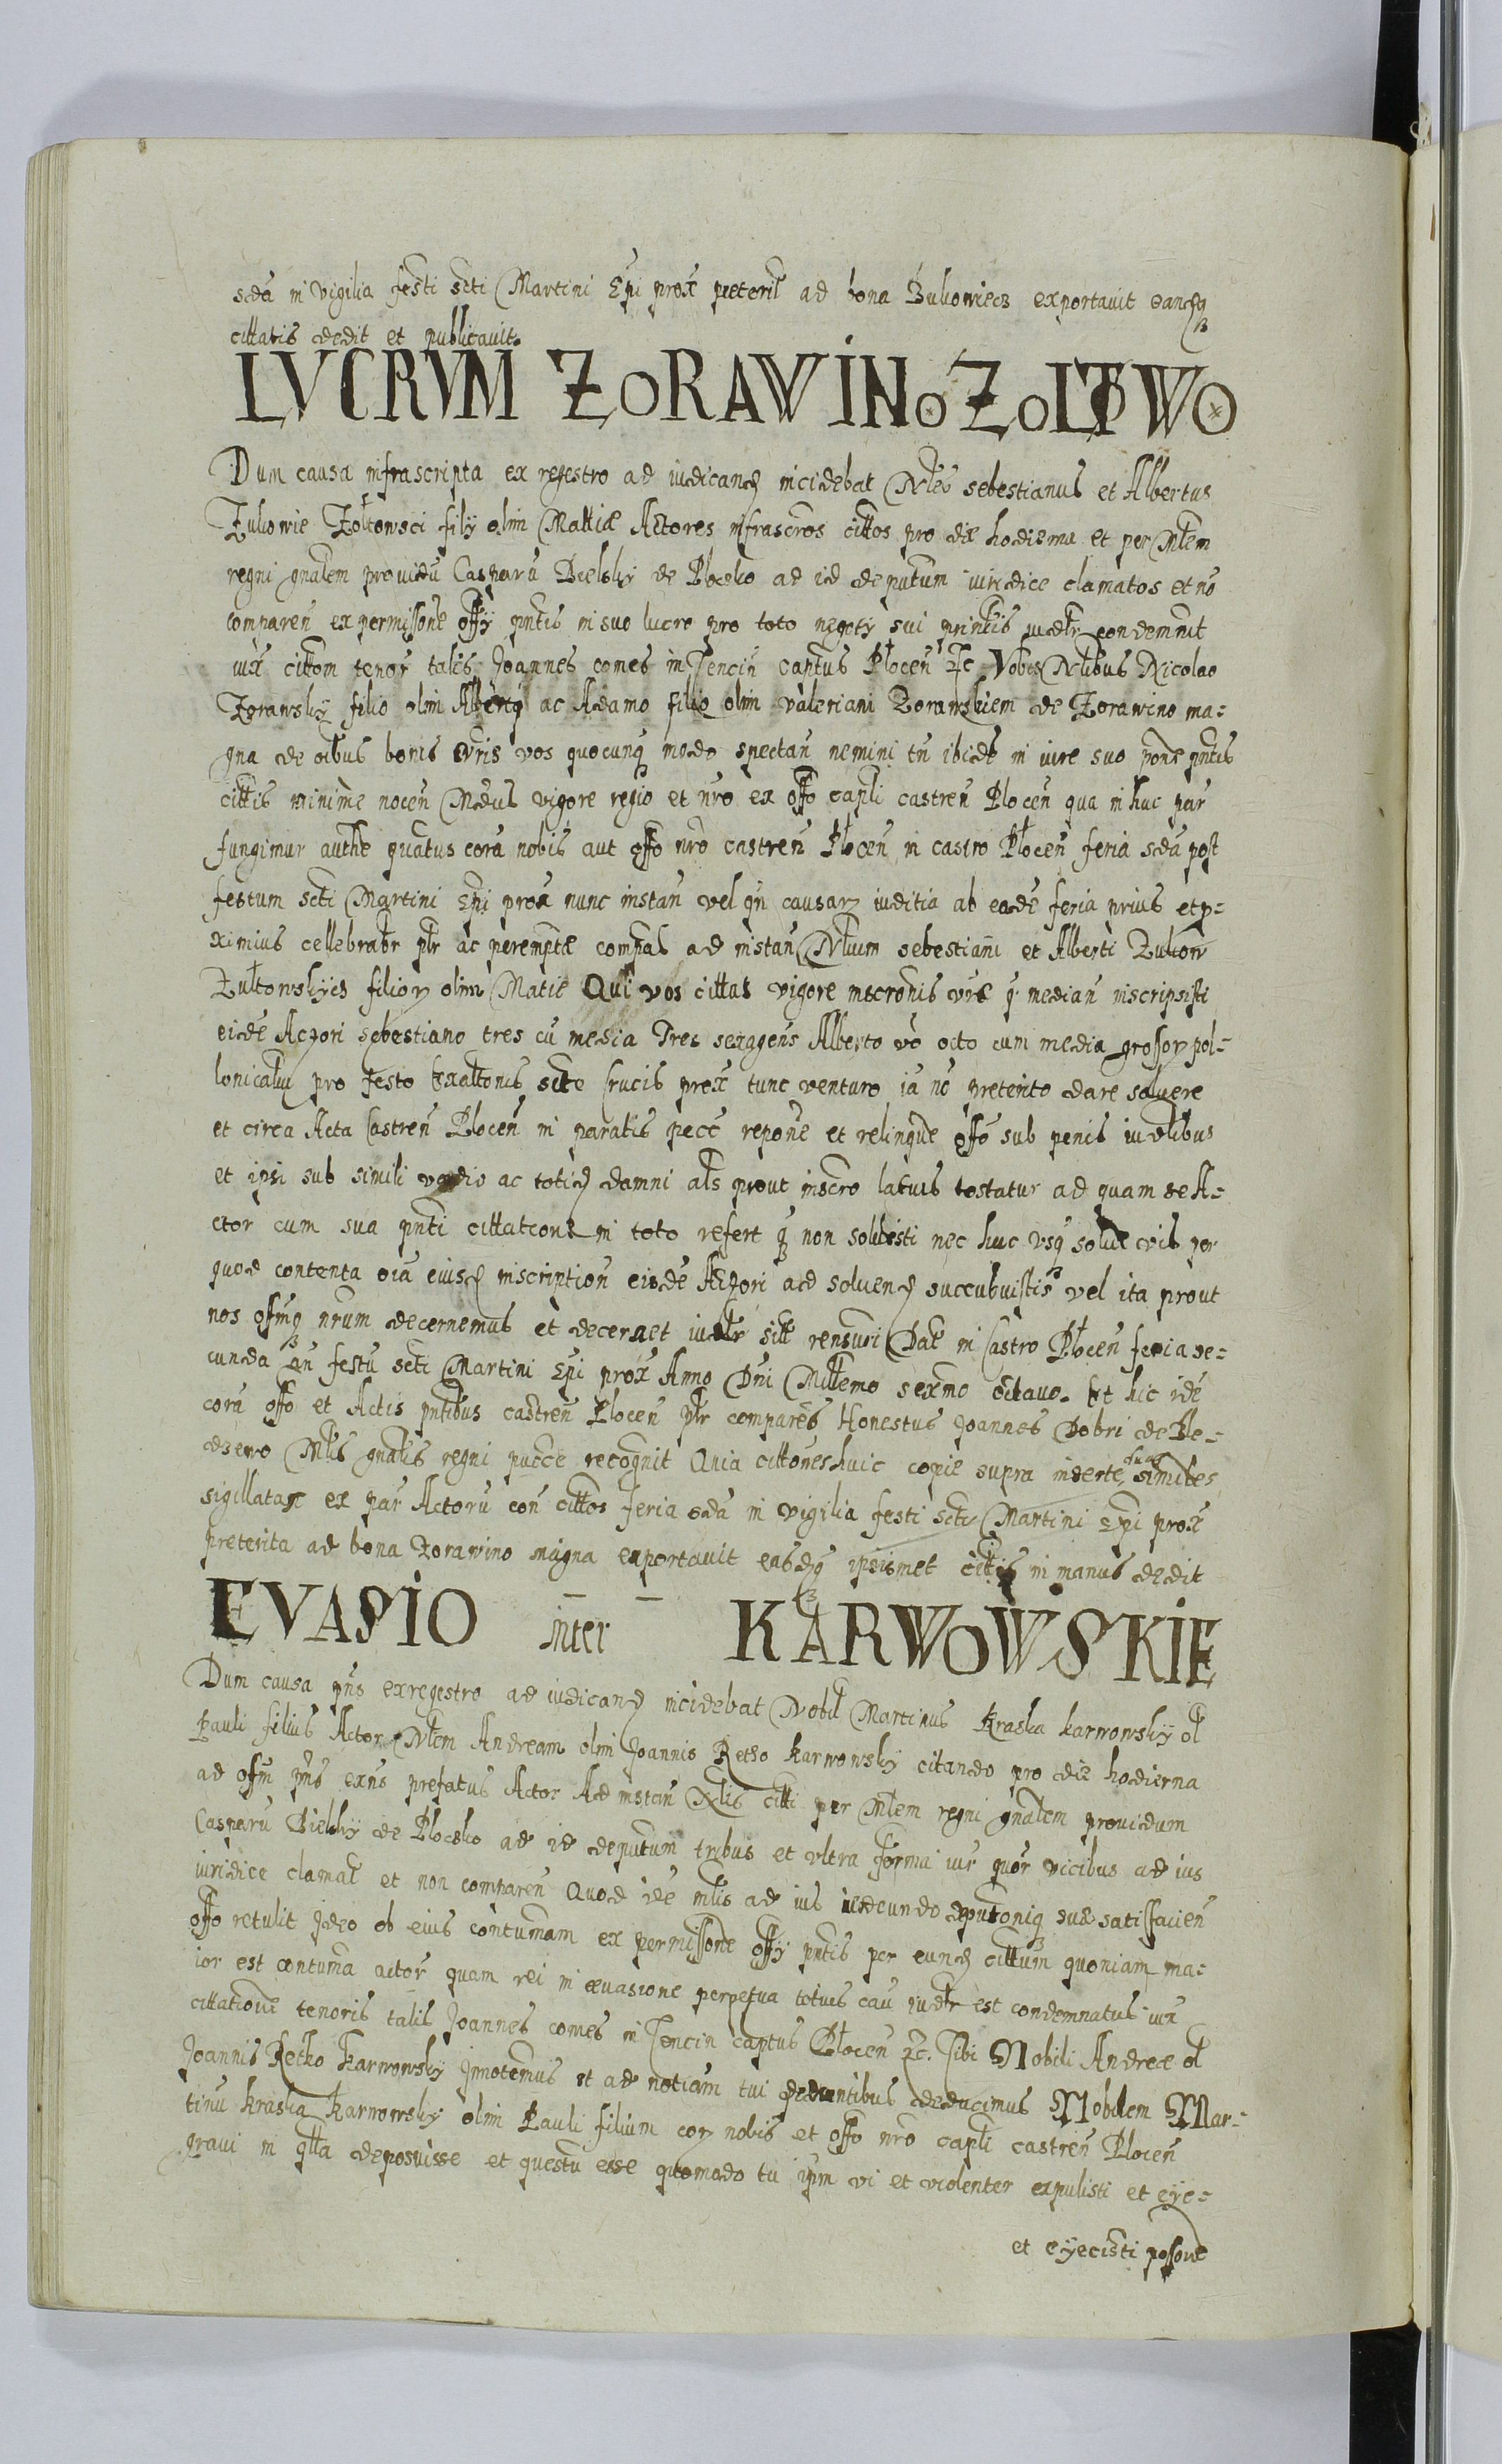 scda in vigilia festi scti Martini Epi prox preterit ad bona Bukowiecz exportavit eandq
cittatis dedit et publicavit.
LVCRVM ZORAWINO ZOLTWO
Dum causa infrascripta ex regestro ad iudicand incidebat Nles sebestianus et Albertus
Zukowie Zołtowsci filij olim Mattiæ Actores infrascros cittos pro die hodierna et per Mlem
regni gnalem providu Casparu Bielsky de Plocko ad id deputum iuridice clamatos et no
comparen ex permissone offy pntis in suo lucro pro toto negoty sui principis iudtr condemnut
iux cittom tenor talis Joannes comes in Tencin captus Płocen Vobis Nlibus Nicolao
Zorawsky filio olim Alberti ac Adamo filio olim valeriani Zorawskiem de Zorawino ma-
gna de oibus bonis vris vos quocunq modo spectan nemini tn ibide in iure suo pone pntis
cittis minime nocen Mdus vigore regio et nro ex offo capli castren Plocen qua in huc par
fungimur authe quatus cora nobis aut offo nro castren Płocen in castro Płocen feria scda post
festum scti Martini Epi prox nunc instan vel qn causar iuditia ab eade feria prius et p-
ximius cellebrabr ptr ac peremptæ compal ad instan Nlium sebestiani et Alberti Zukow
Zułtowskijes filior olim Matiæ Qui vos cittat vigore inscronis vræ q median inscripsisti
eide Actori sebestiano tres cu media Tres sexagens Alberto vo octo cum media grossor pol-
lonicaliu pro festo Exaltonis scte Crucis prox tunc venturo ia no preterito dare solvere
et circa Acta Castren Plocen in paratis pecc repone et relinque offo sub penis iudlibus
et ipsi sub simili vadio ac totid damni als prout inscro latius testatur ad quam se A-
ctor cum sua pnti cittatione in toto refert q non solvisti nec huc usq solve cvis per
quod contenta oia eiusd inscription eisde Actori ad solvend succubuistis vel ita prout
nos offmq nrum decernemus et decernet iudtr sitt rensuri Dat in Castro Płocen feria se-
cunda an festu scti Martini Epi prox Anno Dni Millemo sexmo octavo. Et hic ide
cora offo et Actis pntibus castren Plocen ptr comparens Honestus Joannes Dobri de Ble-
dzewo Mlis gnalis regni pucce recognit Quia cittones huic copie supra inserte duas similes
sigillatas ex par Actoru con cittos feria scda in vigilia festi scti Martini Epi prox
preterita ad bona Zorawino magna exportavit easdq ipsismet cittis in manus dedit
EVASIO inter KARWOWSKIE
Dum causa pns ex regestro ad iudicand incidebat Nobil Martinus Kraska karwowsky ol
Pauli filius Actor Nlem Andream olim Joannis Retko karwowsky citando pro die hodierna
ad offm pns exns prefatus Actor Ad instan Nlis citti per Mlem regni gnalem providum
Casparu Bielsky de Plocko ad id deputum tribus et ultra forma iur quor vicibus ad ius
iuridice clamat et non comparen Quod ide mlis ad ius iudicundo deputoniq suæ satisfacien
offo retulit Jdeo ob eius contumam ex permissone offy pntis per eund cittum quoniam ma-
ior est contuma actor quam rei in evasione perpetua totius cau iudtr est condemnatus iux
cittatione tenoris talis Joannes comes in Tencin captus Płocen Tibi Nobili Andreæ ol
Joannis Retko karwowsky Jnnotemus et ad notiam tui deducentibus deducimus Nobilem Mar-
tinu kraska karwowsky olim Pauli filium cor nobis et offo nro capli castren Plocen
gravi in qlla deposuisse et questu esse quomodo tu ipm vi et violenter expulisti et eÿe-
et eÿecisti possone